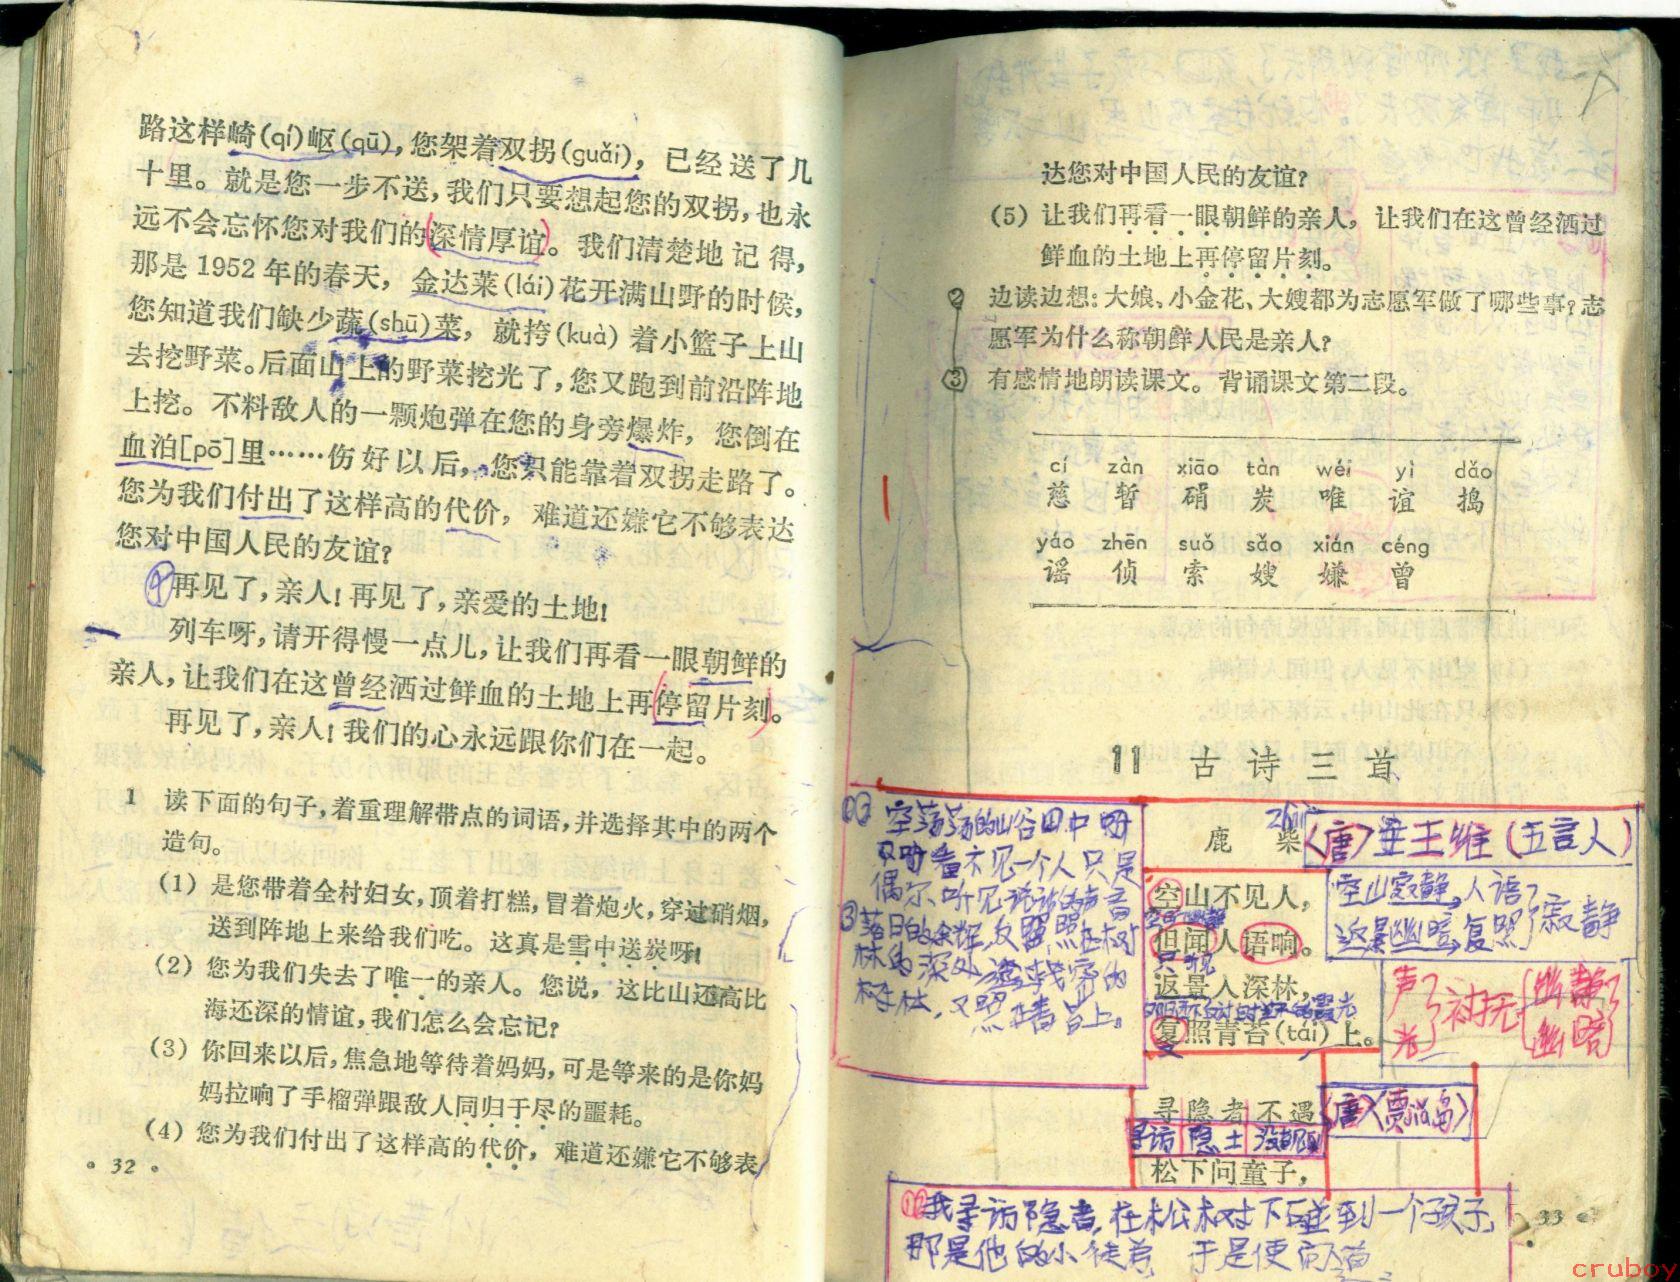 路这样崎(qí)岖(qū)，您架着双拐(guǎi)，已经送了几
十里。就是您一步不送，我们只要想起您的双拐，也永
远不会忘怀您对我们的深情厚谊。我们清楚地记得，
那是1952年的春天，金达莱(lái)花开满山野的时候，
您知道我们缺少蔬(shū)菜，就挎(kuà)着小篮子上山
去挖野菜。后面山上的野菜挖光了，您又跑到前沿阵地
上挖。不料敌人的一颗炮弹在您的身旁爆炸，您倒在
血泊[pō]里……伤好以后，您只能靠着双拐走路了。
您为我们付出了这样高的代价，难道还嫌它不够表达
您对中国人民的友谊？
再见了，亲人！再见了，亲爱的土地！
列车呀，请开得慢一点儿，让我们再看一眼朝鲜的
亲人，让我们在这曾经洒过鲜血的土地上再停留片刻。
再见了，亲人！我们的心永远跟你们在一起。
1 读下面的句子，着重理解带点的词语，并选择其中的两个
造句。
(1) 是您带着全村妇女，顶着打糕，冒着炮火，穿过硝烟，
送到阵地上来给我们吃。这真是雪中送炭呀！
(2) 您为我们失去了唯一的亲人。您说，这比山还高比
海还深的情谊，我们怎么会忘记？
(3) 你回来以后，焦急地等待着妈妈，可是等来的是你妈
妈拉响了手榴弹跟敌人同归于尽的噩耗。
(4) 您为我们付出了这样高的代价，难道还嫌它不够表
·32·
达您对中国人民的友谊？
(5) 让我们再看一眼朝鲜的亲人，让我们在这曾经洒过
鲜血的土地上再停留片刻。
2 边读边想：大娘、小金花、大嫂都为志愿军做了哪些事？志
愿军为什么称朝鲜人民是亲人？
3 有感情地朗读课文。背诵课文第二段。
cí zàn xiāo tàn wéi yì dǎo
慈 暂 硝 炭 唯 谊 捣
yáo zhēn suǒ sǎo xián céng
谣 侦 索 嫂 嫌 曾
11 古诗三首
鹿柴
〈唐〉王维（五言人）
①② 空荡荡的山谷中
看不见一个人只是
偶尔听见说话的声音
③ 落日的余辉反照在树
林的深处，透过的
树林，又照在青苔上。
空山不见人，
但闻人语响。
只听见
返景入深林，
复照青苔(tái)上。
空山寂静，人语了
返景幽暗，复照了寂静
声 衬托 幽静
光 幽暗
寻隐者不遇
〈唐〉〈贾岛〉
寻访 隐士 没遇
松下问童子，
①②我寻访隐者，在松树下碰到一个孩子，
那是他的小徒弟 于是便问
33
cruboy